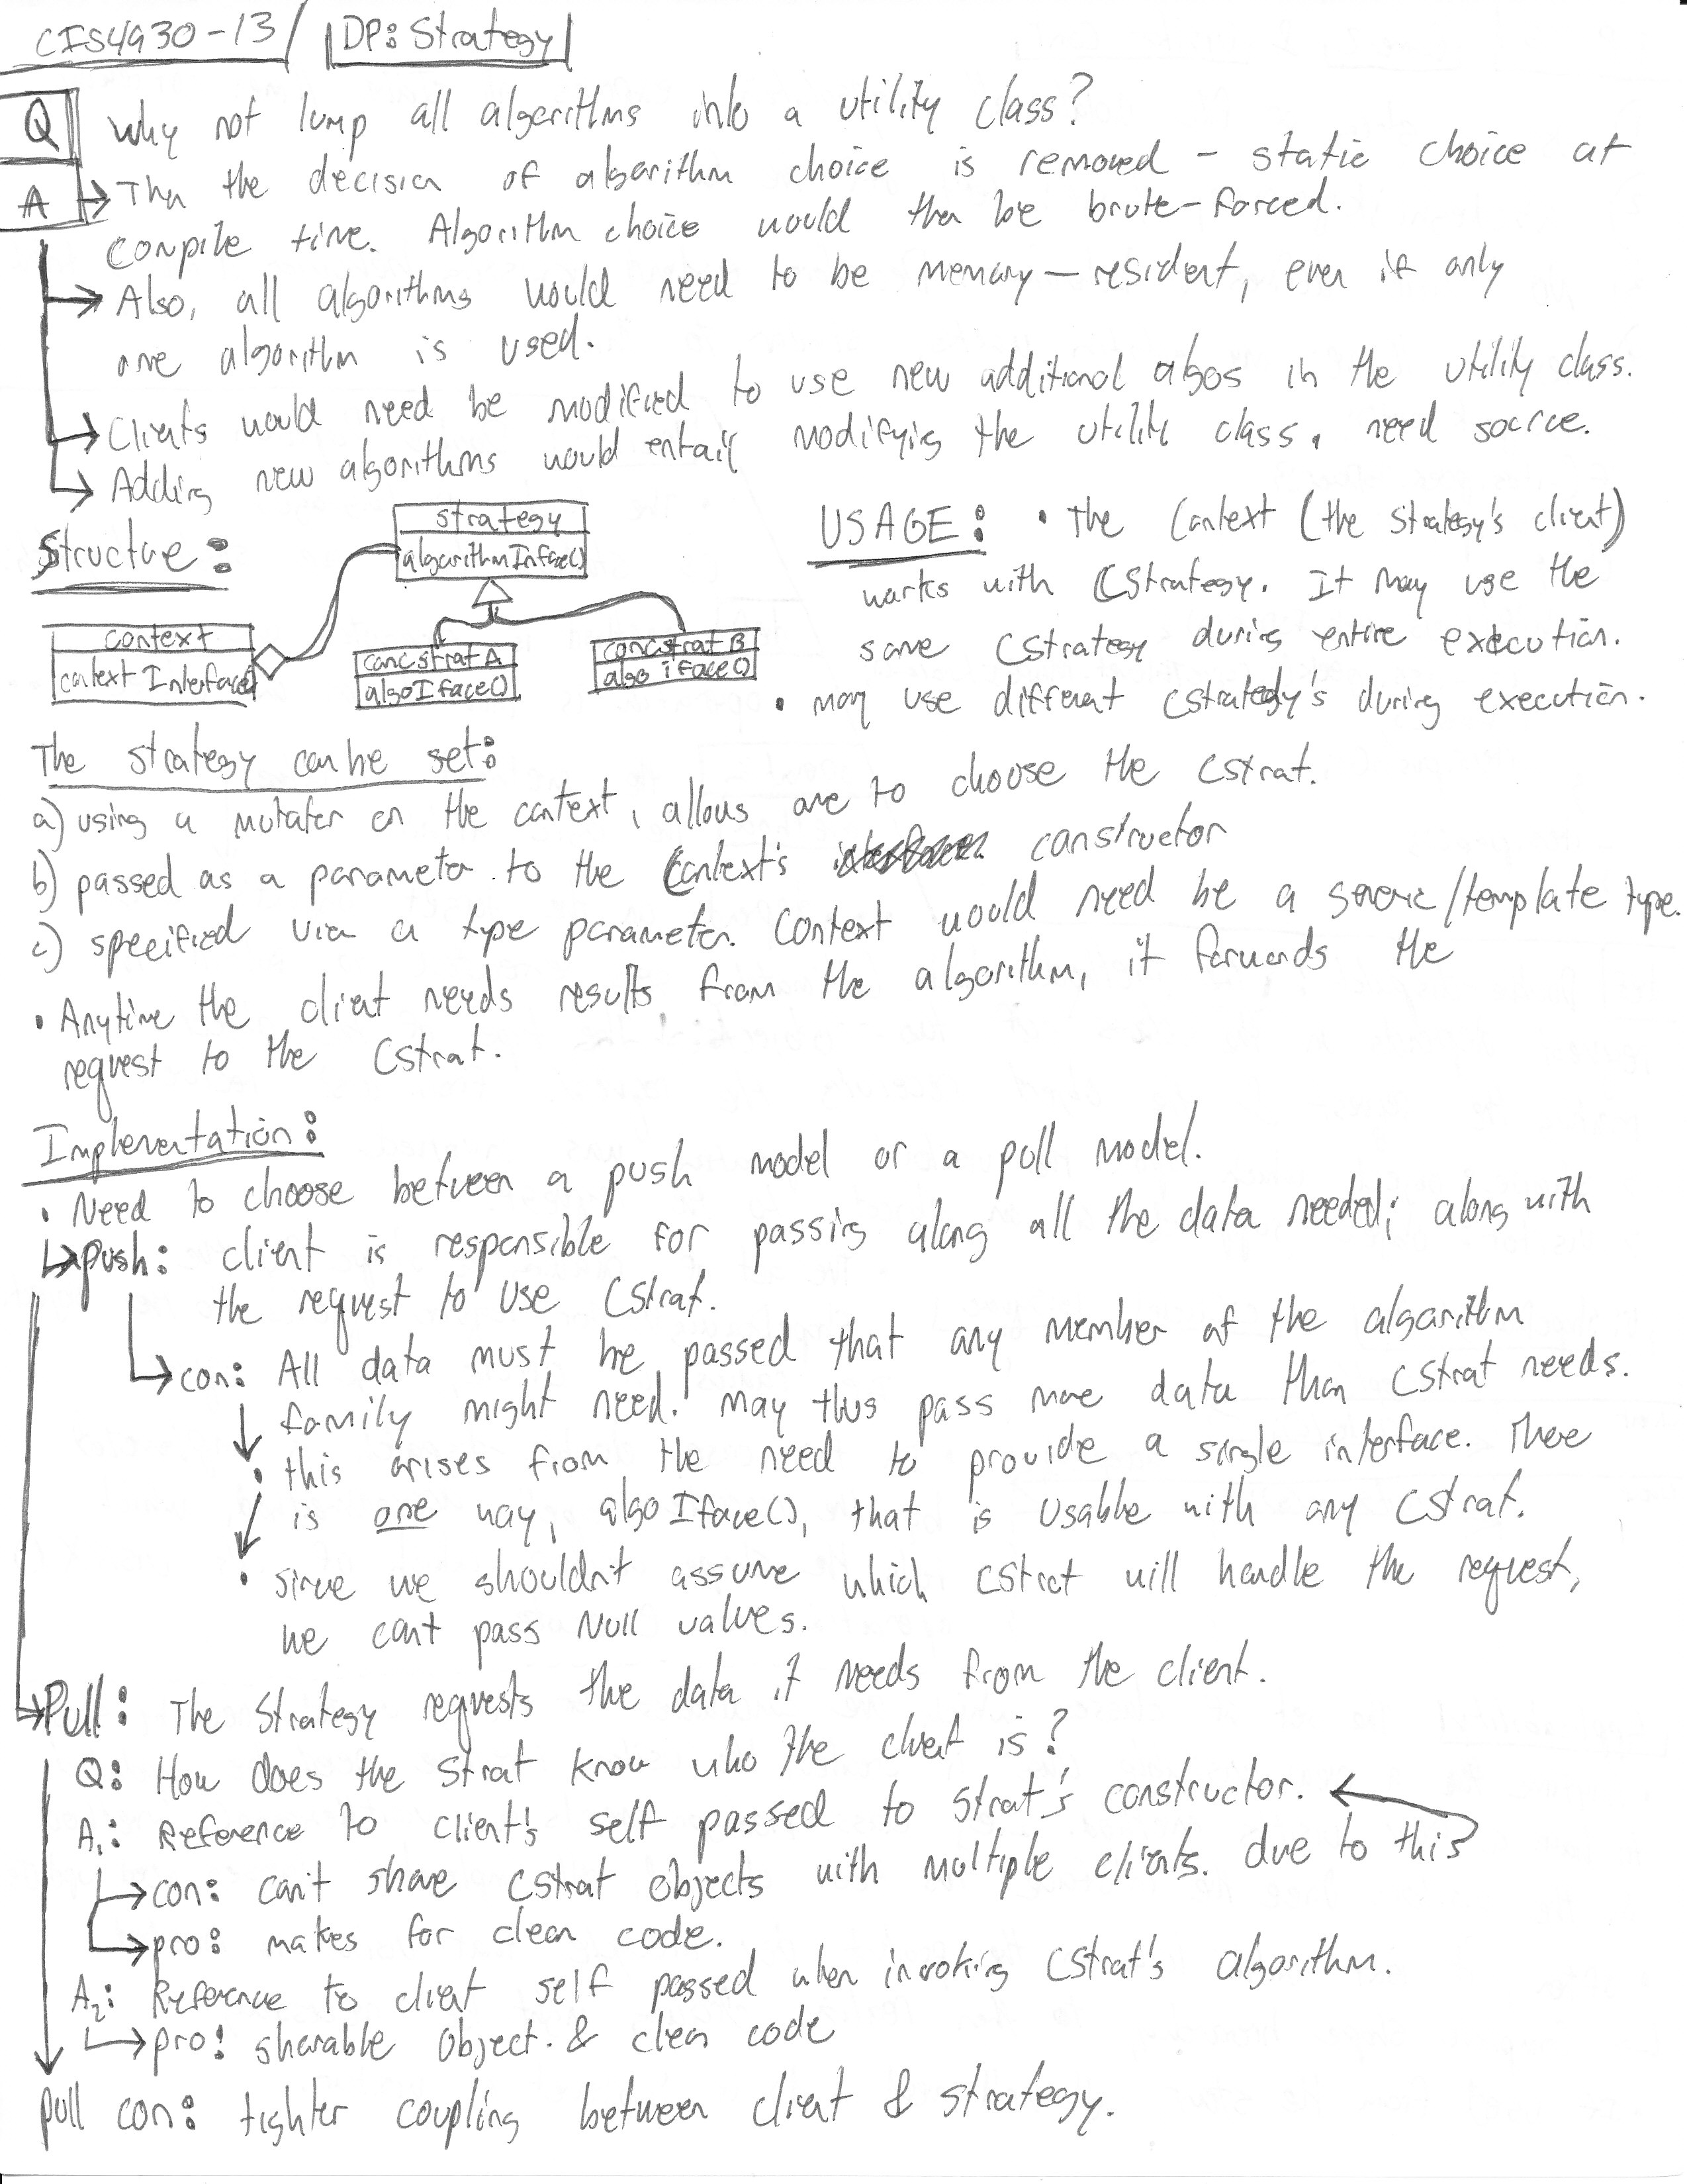 CIS4930-13 / |DP: Strategy|
Q Why not lump all algorithms into a utility class?
A → Then the decision of algorithm choice is removed - static choice at
compile time. Algorithm choice would then be brute-forced.
→ Also, all algorithms would need to be memory-resident, even if only
one algorithm is used.
→ Clients would need be modified to use new additional algos in the utility class.
→ Adding new algorithms would entail modifying the utility class, need source.
Structure:
strategy
algorithmInface()
context
contextInterface()
concstrat A
algoIface()
concstrat B
algo iface()
USAGE: • The Context (the strategy's client)
works with CStrategy. It may use the
same CStrategy during entire execution.
• may use different Cstrategy's during execution.
The strategy can be set:
a) using a mutater on the context, allows one to choose the Cstrat.
b) passed as a parameter to the Context's constructor
c) specified via a type parameter. Context would need be a generic/template type.
• Anytime the client needs results from the algorithm, it forwards the
request to the Cstrat.
Implementation:
• Need to choose between a push model or a pull model.
↳ push: client is responsible for passing along all the data needed; along with
the request to use CStrat.
→ con: All data must be passed that any member of the algorithm
family might need. May thus pass more data than CStrat needs.
• this arises from the need to provide a single interface. There
is one way, algoIface(), that is usable with any CStrat.
• since we shouldn't assume which CStrat will handle the request,
we can't pass Null values.
→ Pull: The Strategy requests the data it needs from the client.
Q: How does the strat know who the client is?
A1: Reference to client's self passed to strat's constructor. ←
→ con: can't share CStrat objects with multiple clients. due to this
→ pro: makes for clean code.
A2: Reference to client self passed when invoking CStrat's algorithm.
→ pro: sharable object. & clean code
pull con: tighter coupling between client & strategy.